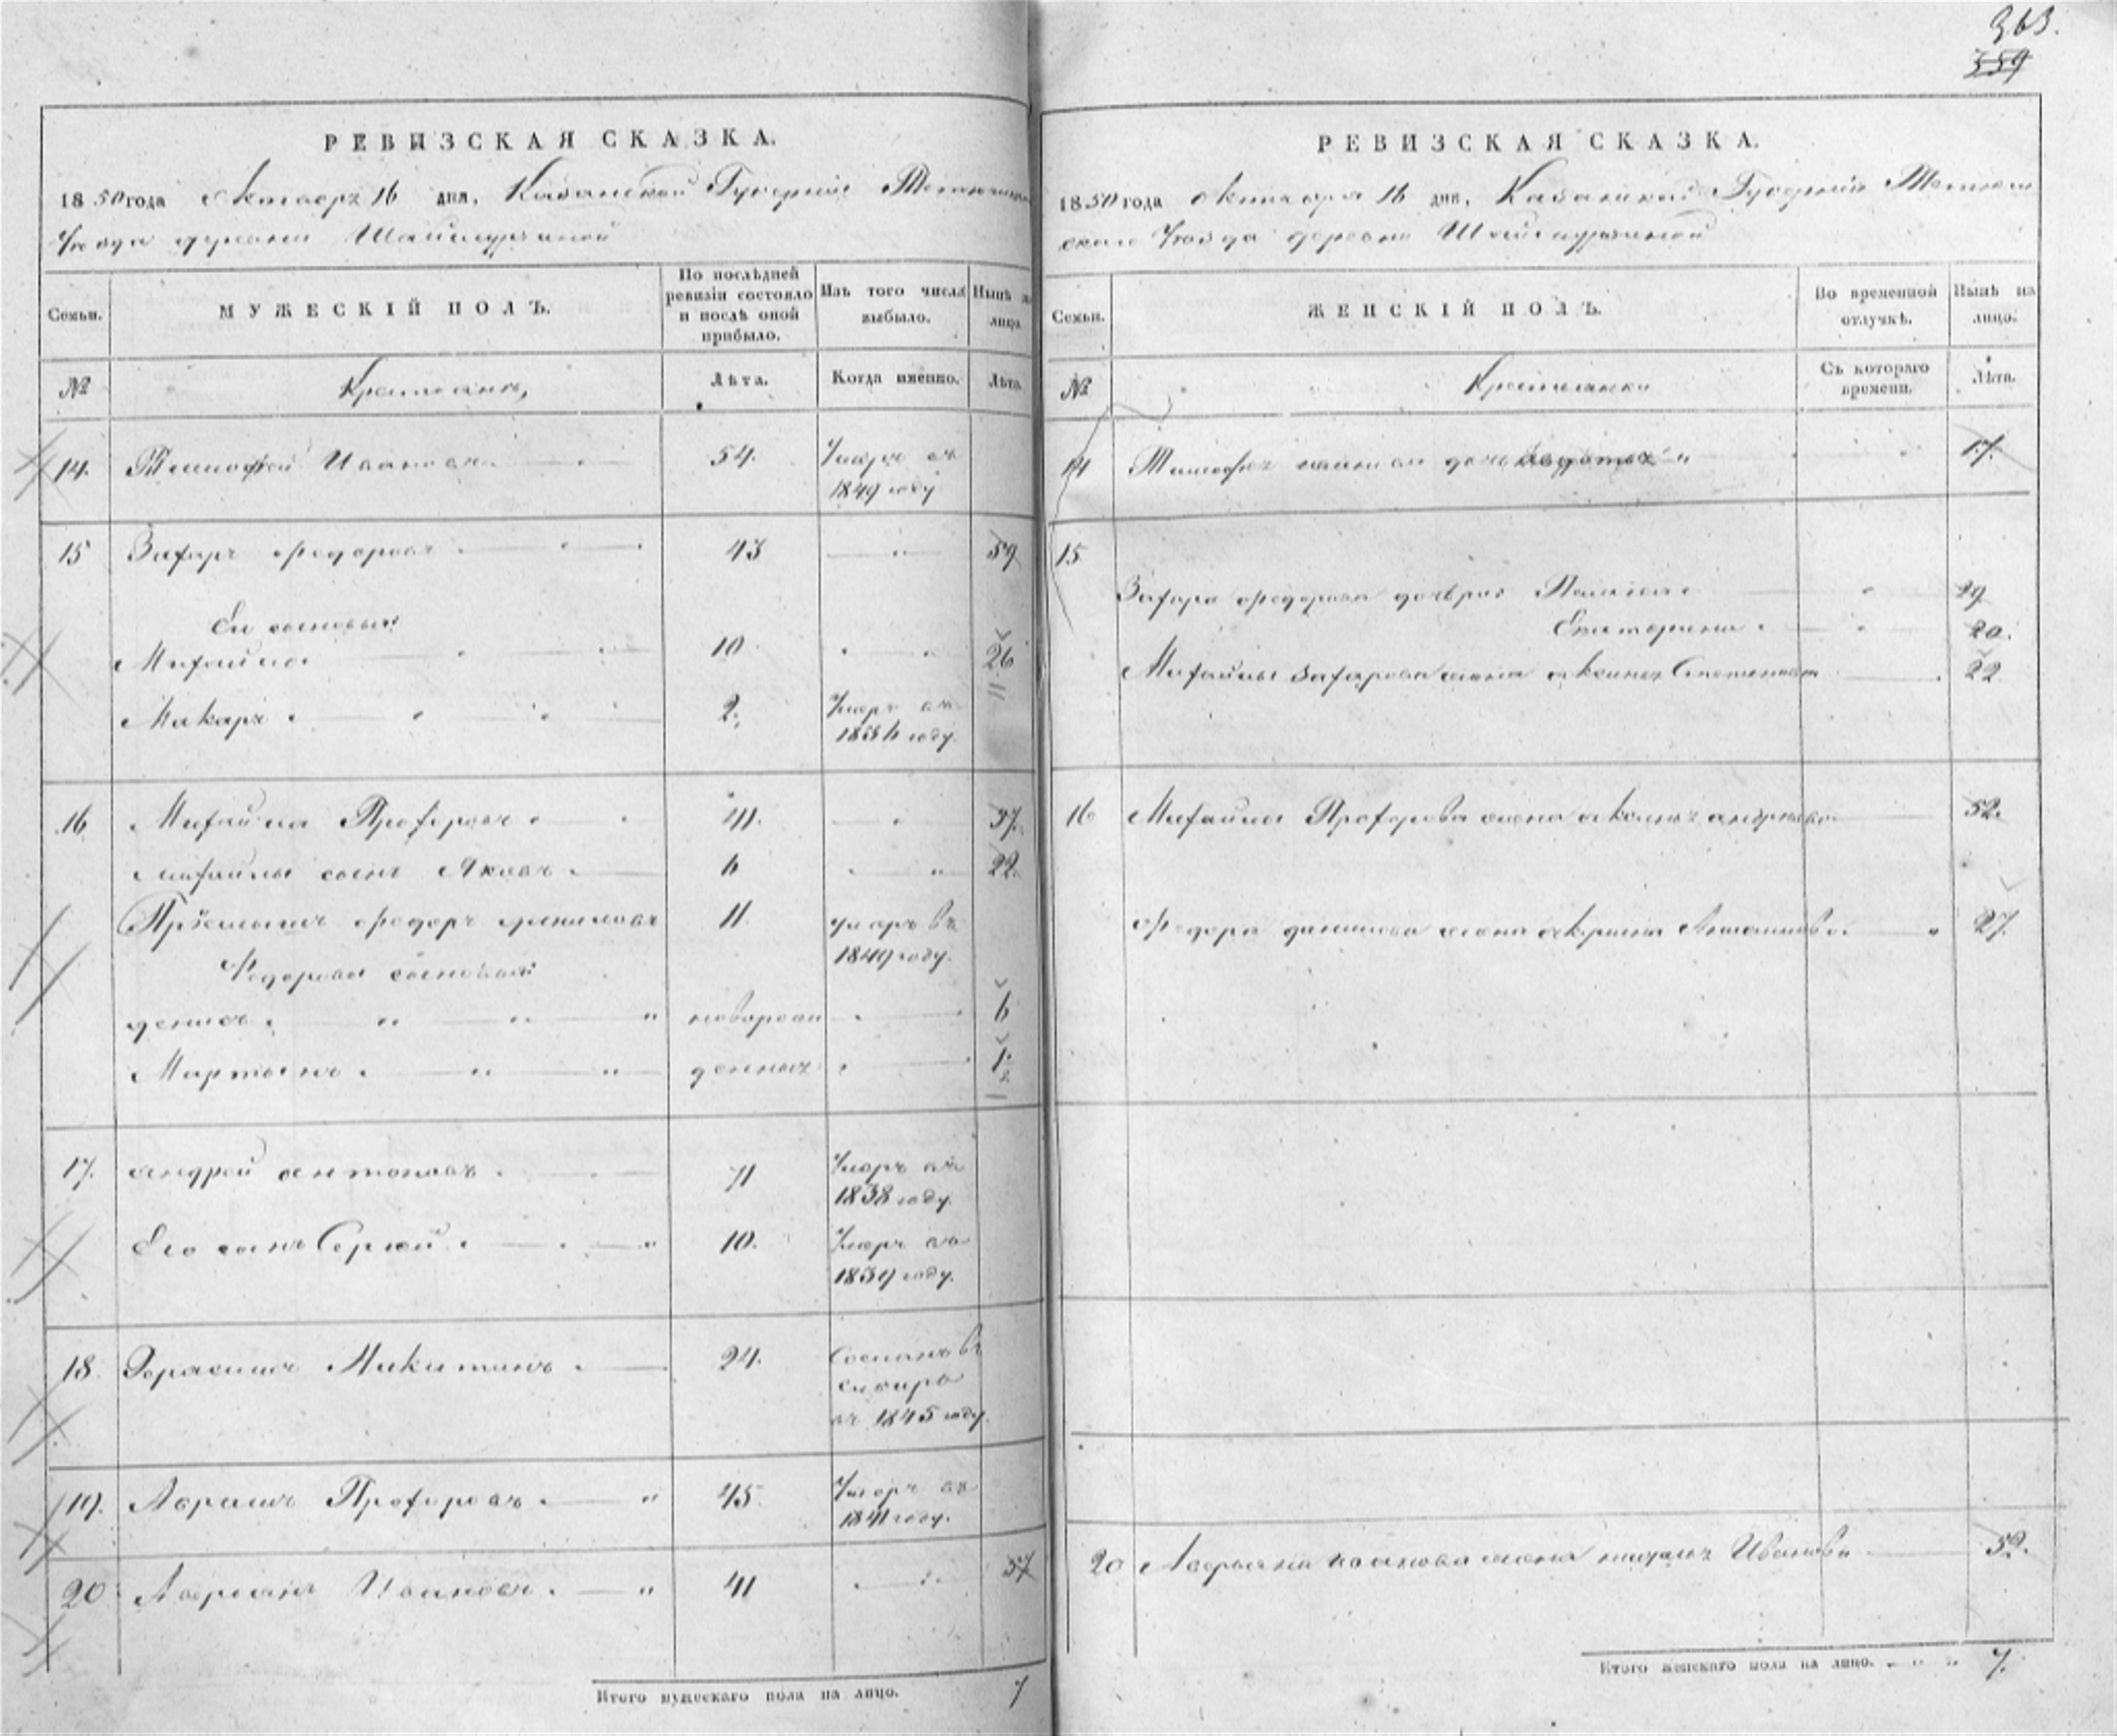 363.
359
РЕВИЗСКАЯ СКАЗКА.
1850 года Октября 16 дня, Казанской Губернии
Уезда деревни
Семьи. МУЖЕСКІЙ ПОЛЪ. По послѣдней ревизіи состояло и послѣ оной прибыло. Изъ того числа выбыло. Нынѣ на лицо.
№ Крестьянъ, Лѣта. Когда именно. Лѣта.
14. Тимофей Ивановъ 54. Умеръ въ
1849 году
15 Захаръ Федоровъ 43 59
Его сыновья
Михайла 10 26
Макаръ 2. Умеръ въ
1834 году.
16 Михайла Прохоровъ 41. 57.
Михайлы сынъ Яковъ 6 22.
Пріемышъ Федоръ Даниловъ 11. умеръ въ
1849 году.
Федоровы сыновья
Денисъ новорож 6
Мартынъ денныя 1.
17. Андрей Антоновъ 71 Умеръ въ
1838 году.
Его сынъ Сергей 10. Умеръ въ
1839 году.
18. Герасимъ Микитинъ 24. Сосланъ въ
сибирь
въ 1845 году.
19. Абрамъ Прохоровъ 45. Умеръ въ
1841 году.
20 Аверьянъ Ивановъ 41 57
Итого мужескаго пола на лицо. 7
РЕВИЗСКАЯ СКАЗКА.
1850 года Октября 16 дня, Казанской Губерніи Тетюш
скаго Уезда деревни
Семьи. ЖЕНСКІЙ ПОЛЪ. Во временной отлучкѣ. Нынѣ на лицо.
№ Крестьянки Съ котораго времени. Лѣта.
14 дочь 17.
15
Захара Федорова дочери Пелагея 29
Екатерина 20.
Михайлы Захарова жена Аксинья Степанова 22
16 Михайлы Прохорова жена Аксинья Андреева 52.
Федора Данилова жена Акулина 27.
20 Аверьяна Иванова жена Иванова 52.
Итого женскаго пола на лицо. 7.